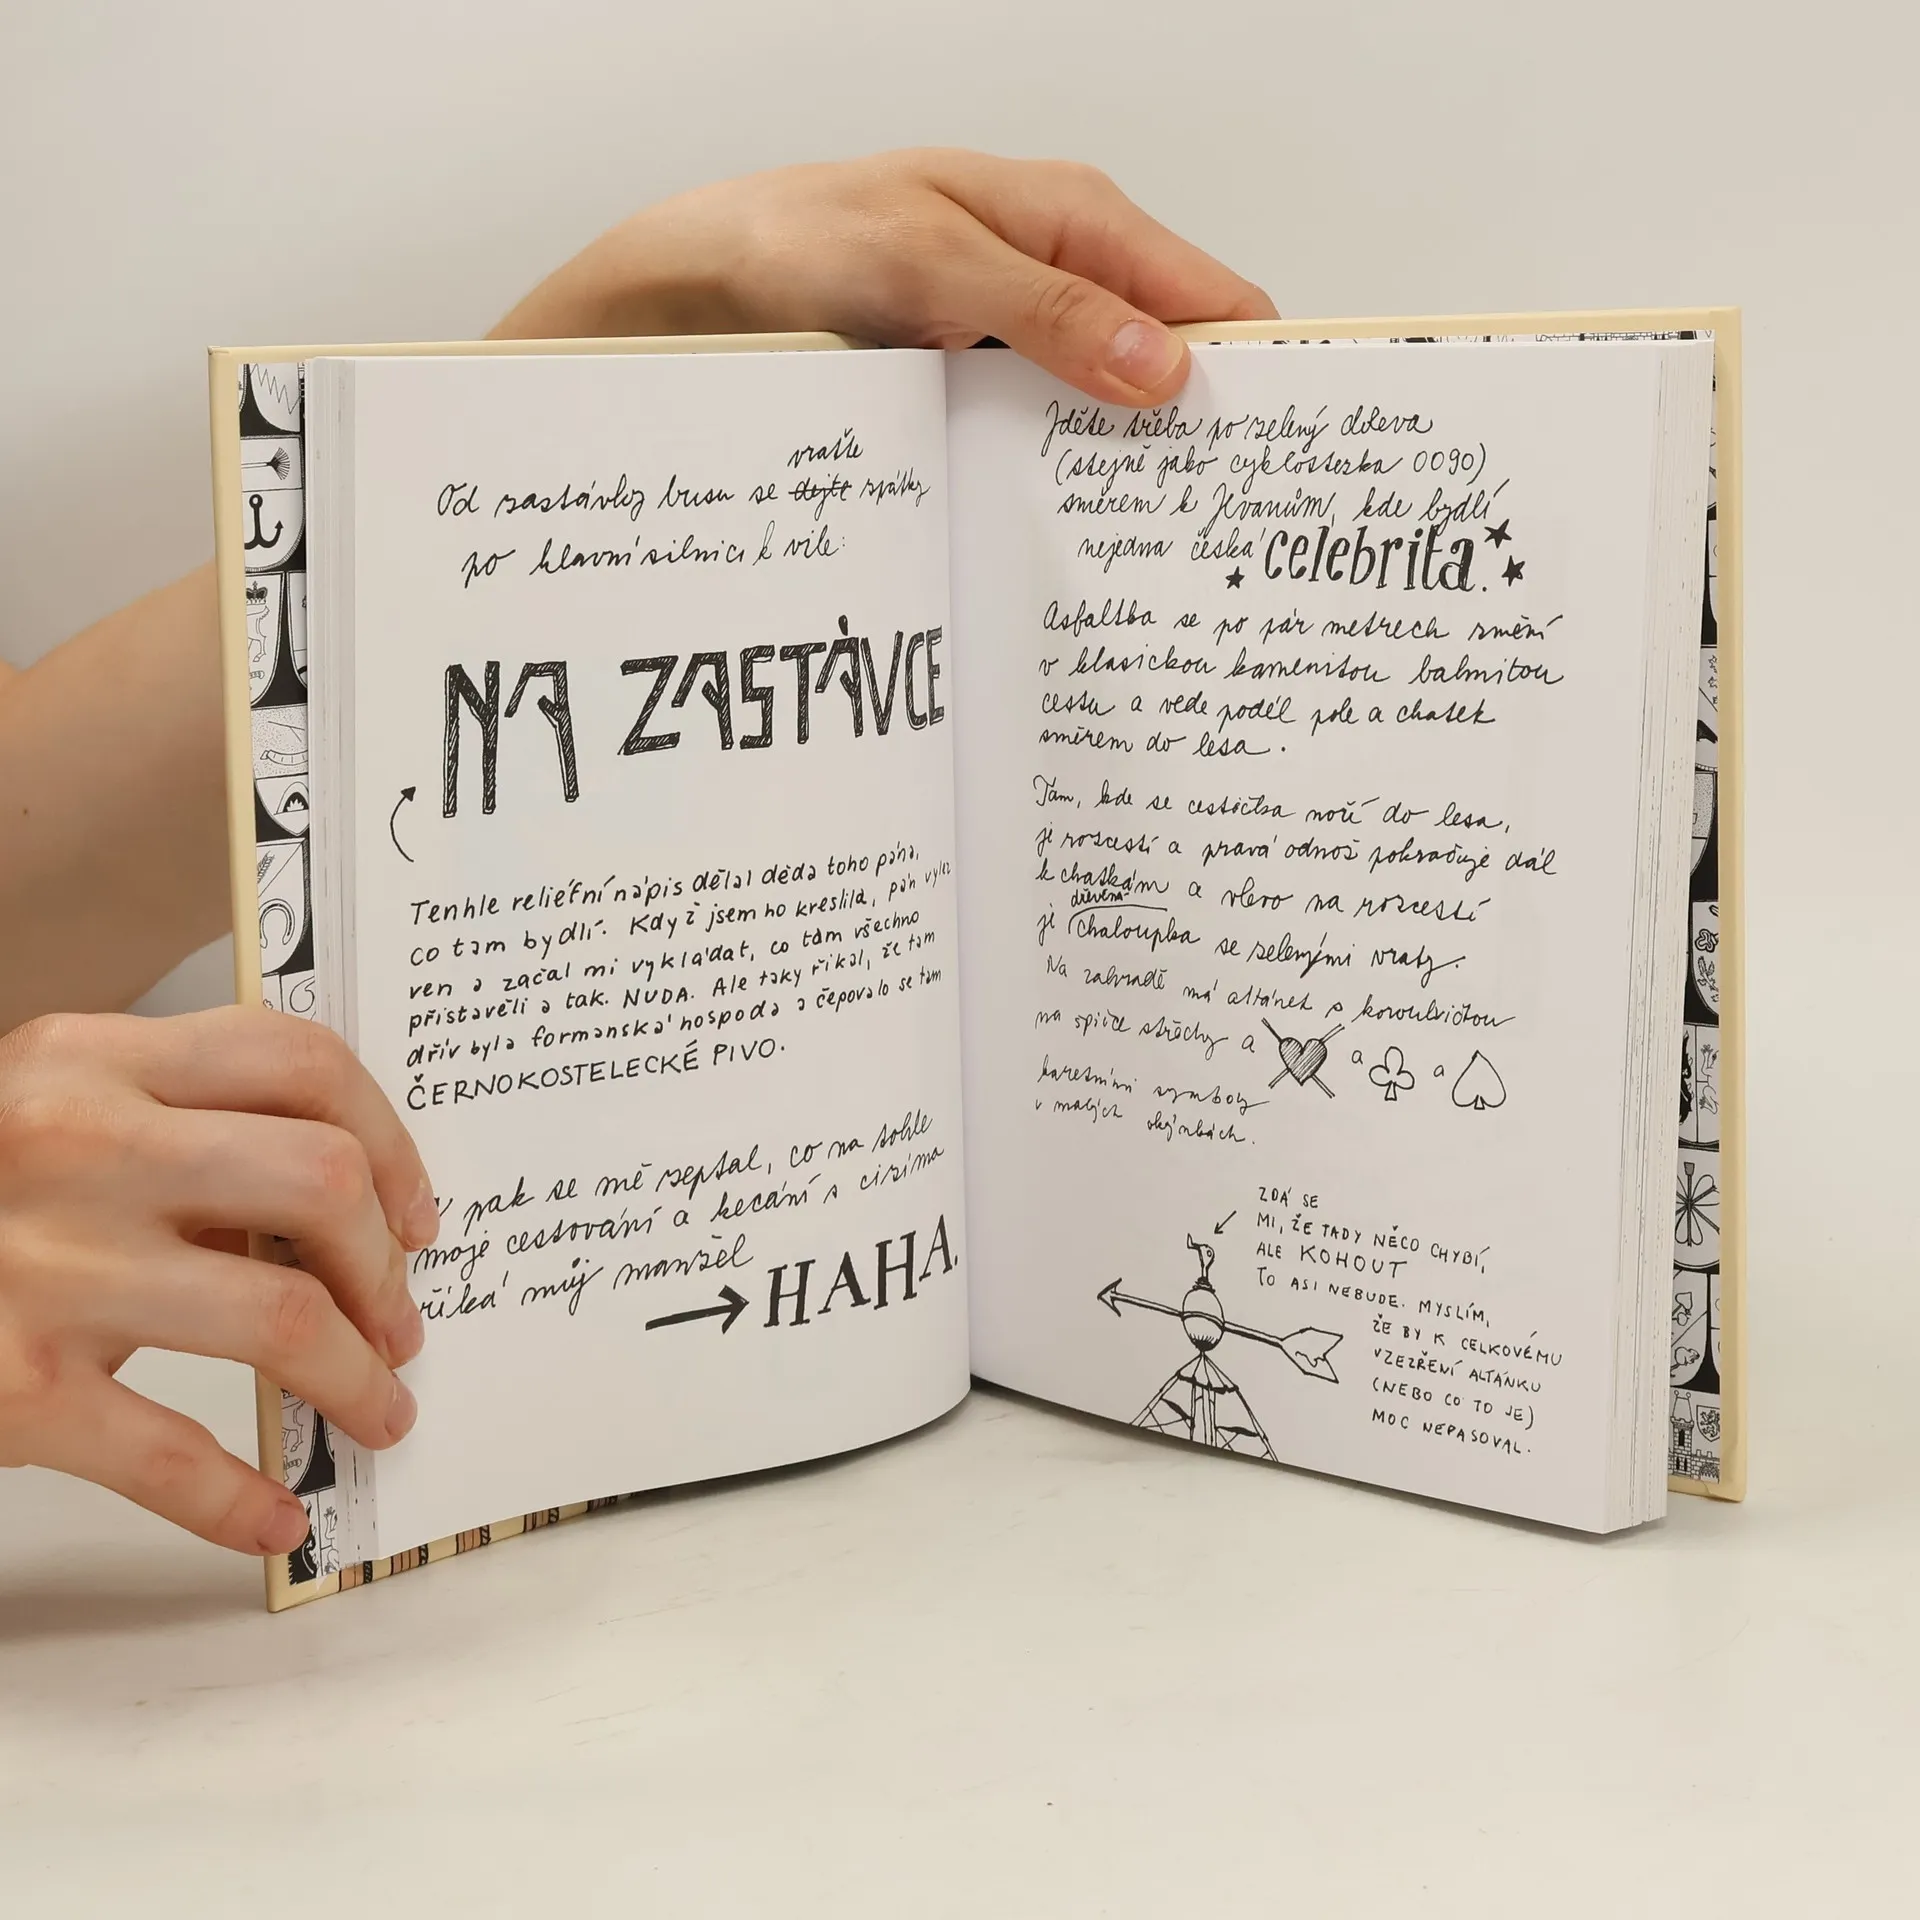 vraťte
Od zastávky busu se dejte zpátky
po hlavní silnici k vile:
NA ZASTÁVCE
Tenhle reliéfní nápis dělal děda toho pána,
co tam bydlí. Když jsem ho kreslila, pán vylez
ven a začal mi vykládat, co tam všechno
přistavěli a tak. NUDA. Ale taky říkal, že tam
dřív byla formanská hospoda a čepovalo se tam
ČERNOKOSTELECKÉ PIVO.
pak se mě zeptal, co na tohle
moje cestování a kecání s cizíma
říká můj manžel
HAHA.
Jděte třeba po zelený doleva
(stejně jako cyklostezka 0090)
směrem k Jevanům, kde bydlí
nejedna česká celebrita.
Asfaltka se po pár metrech změní
v klasickou kamenitou bahnitou
cestu a vede podél pole a chatek
směrem do lesa.
Tam, kde se cestička noří do lesa,
je rozcestí a pravá odnož pokračuje dál
k chatkám a vlevo na rozcestí
dřevěná
je chaloupka se zelenými vraty.
Na zahradě má altánek s korouhvičkou
na špičce střechy a a a
karetními symboly
v malých okýnkách.
ZDÁ SE
MI, ŽE TADY NĚCO CHYBÍ,
ALE KOHOUT
TO ASI NEBUDE. MYSLÍM,
ŽE BY K CELKOVÉMU
VZEZŘENÍ ALTÁNKU
(NEBO CO TO JE)
MOC NEPASOVAL.